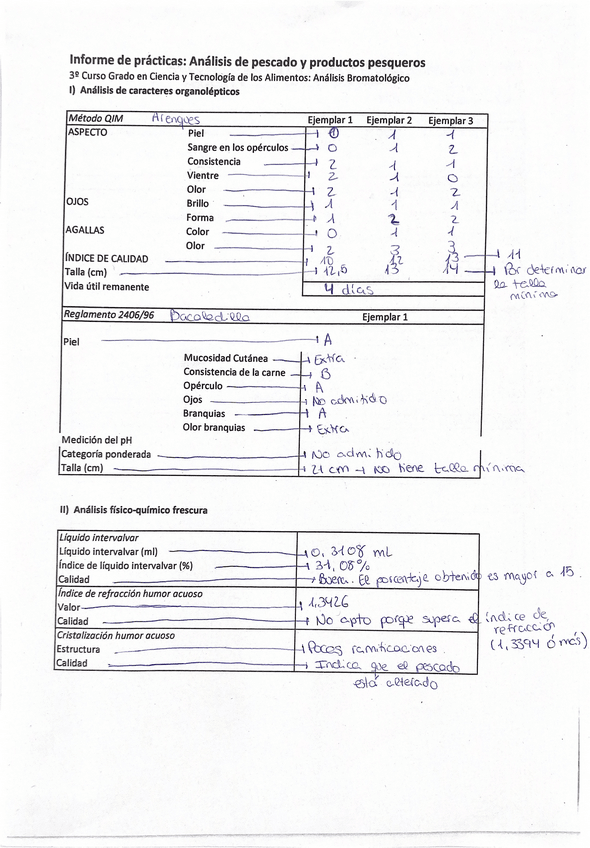 Informe de prácticas: Análisis de pescado y productos pesqueros
3º Curso Grado en Ciencia y Tecnología de los Alimentos: Análisis Bromatológico
I) Análisis de caracteres organolépticos
Método QIM Arenques Ejemplar 1 Ejemplar 2 Ejemplar 3
ASPECTO Piel 1 1 1
Sangre en los opérculos 0 1 2
Consistencia 2 1 1
Vientre 2 1 0
Olor 2 1 2
OJOS Brillo 1 1 1
Forma 1 2 2
AGALLAS Color 0 1 1
Olor 2 3 3
ÍNDICE DE CALIDAD 10 12 13 → 11
Talla (cm) 12,5 13 14 → Por determinar
la talla
mínima
Vida útil remanente 4 días
Reglamento 2406/96 Bacaladilla Ejemplar 1
Piel A
Mucosidad Cutánea Extra
Consistencia de la carne B
Opérculo A
Ojos No admitido
Branquias A
Olor branquias Extra
Medición del pH
Categoría ponderada No admitido
Talla (cm) 21 cm → No tiene talla mínima
II) Análisis físico-químico frescura
Líquido intervalvar
Líquido intervalvar (ml) 0,3108 mL
Índice de líquido intervalvar (%) 31,08%
Calidad Buena. El porcentaje obtenido es mayor a 15.
Índice de refracción humor acuoso
Valor 1,3426
Calidad No apto porque supera el índice de
refracción
(1,3394 ó más)
Cristalización humor acuoso
Estructura Pocas ramificaciones.
Calidad Indica que el pescado
está alterado